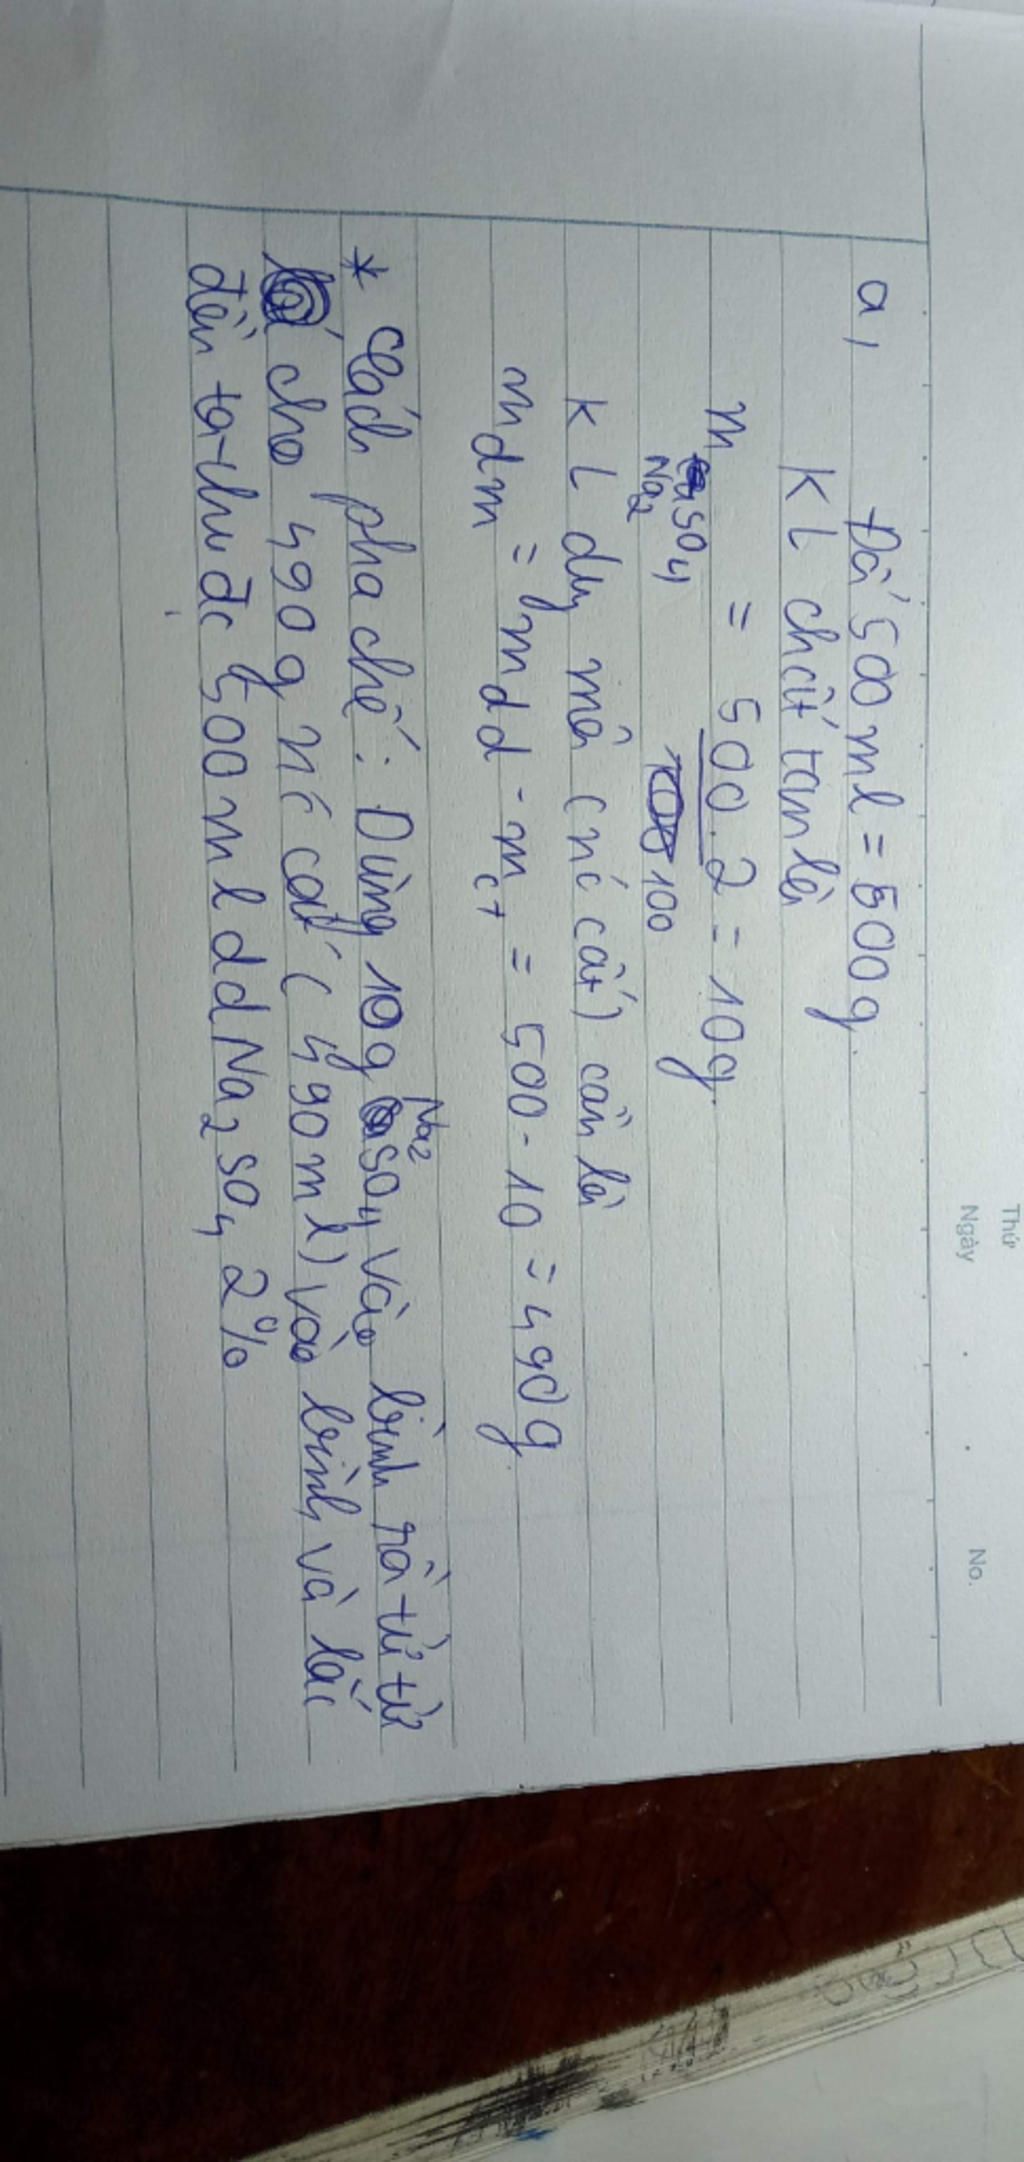 Thứ
Ngày . . No.
a, Đổi 500ml = 500g.
KL chất tan là
m Na2SO4 = 500.2 = 10g.
100
KL dung môi (nc cất) cần là
mdm = mdd - mct = 500 - 10 = 490g
* Cách pha chế: Dùng 10g Na2SO4 vào bình rồi từ từ
cho 490g nc cất (490ml) vào bình và lắc
đều ta thu đc 500ml dd Na2SO4 2%